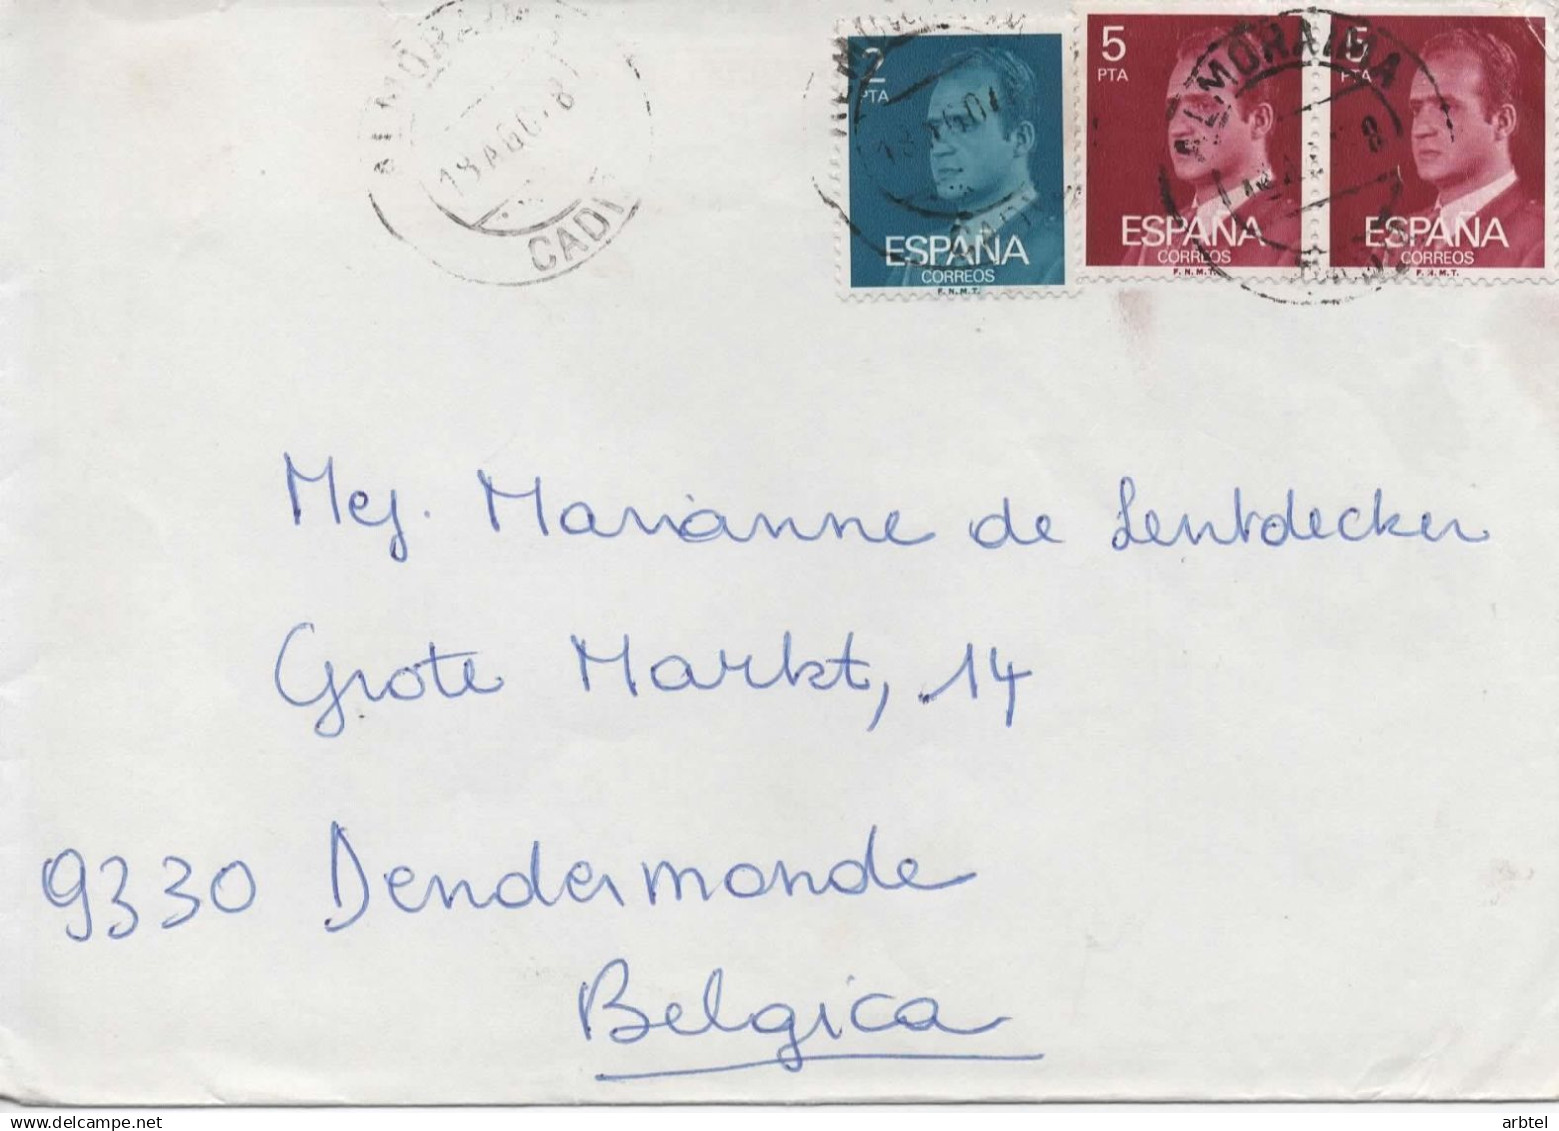 ALMORAIMA
18 AGO. 8
CADI
2
PTA
ESPAÑA
CORREOS
F.N.M.T.
5
PTA
ESPAÑA
CORREOS
F.N.M.T.
5
PTA
ESPAÑA
CORREOS
F.N.M.T.
ALMORAIMA
18 AGO
Mej. Marianne de Lentdecker
Grote Markt, 14
9330 Dendermonde
Belgica
www.delcampe.net
arbtel